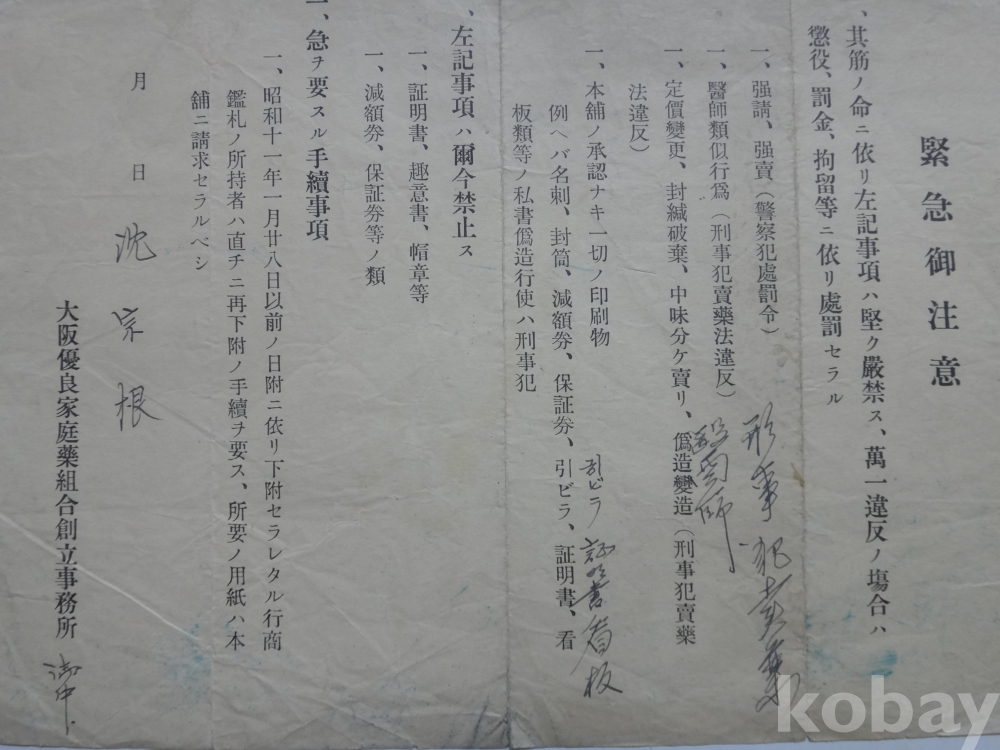 緊急御注意
、其筋ノ命ニ依リ左記事項ハ堅ク嚴禁ス、萬一違反ノ場合ハ
懲役、罰金、拘留等ニ依リ處罰セラル
一、强請、强賣（警察犯處罰令）
形事犯賣薬
一、醫師類似行爲（刑事犯賣藥法違反）
一、定價變更、封緘破棄、中味分ケ賣リ、僞造變造（刑事犯賣藥
法違反）
一、本舗ノ承認ナキ一切ノ印刷物
引ビラ 証明書 看板
例ヘバ名刺、封筒、減額券、保証券、引ビラ、証明書、看
板類等ノ私書僞造行使ハ刑事犯
、左記事項ハ爾今禁止ス
一、証明書、趣意書、帽章等
一、減額券、保証券等ノ類
一、急ヲ要スル手續事項
一、昭和十一年一月廿八日以前ノ日附ニ依リ下附セラレタル行商
鑑札ノ所持者ハ直チニ再下附ノ手續ヲ要ス、所要ノ用紙ハ本
舗ニ請求セラルベシ
月 日 沈宗根
大阪優良家庭藥組合創立事務所 御中
kobay